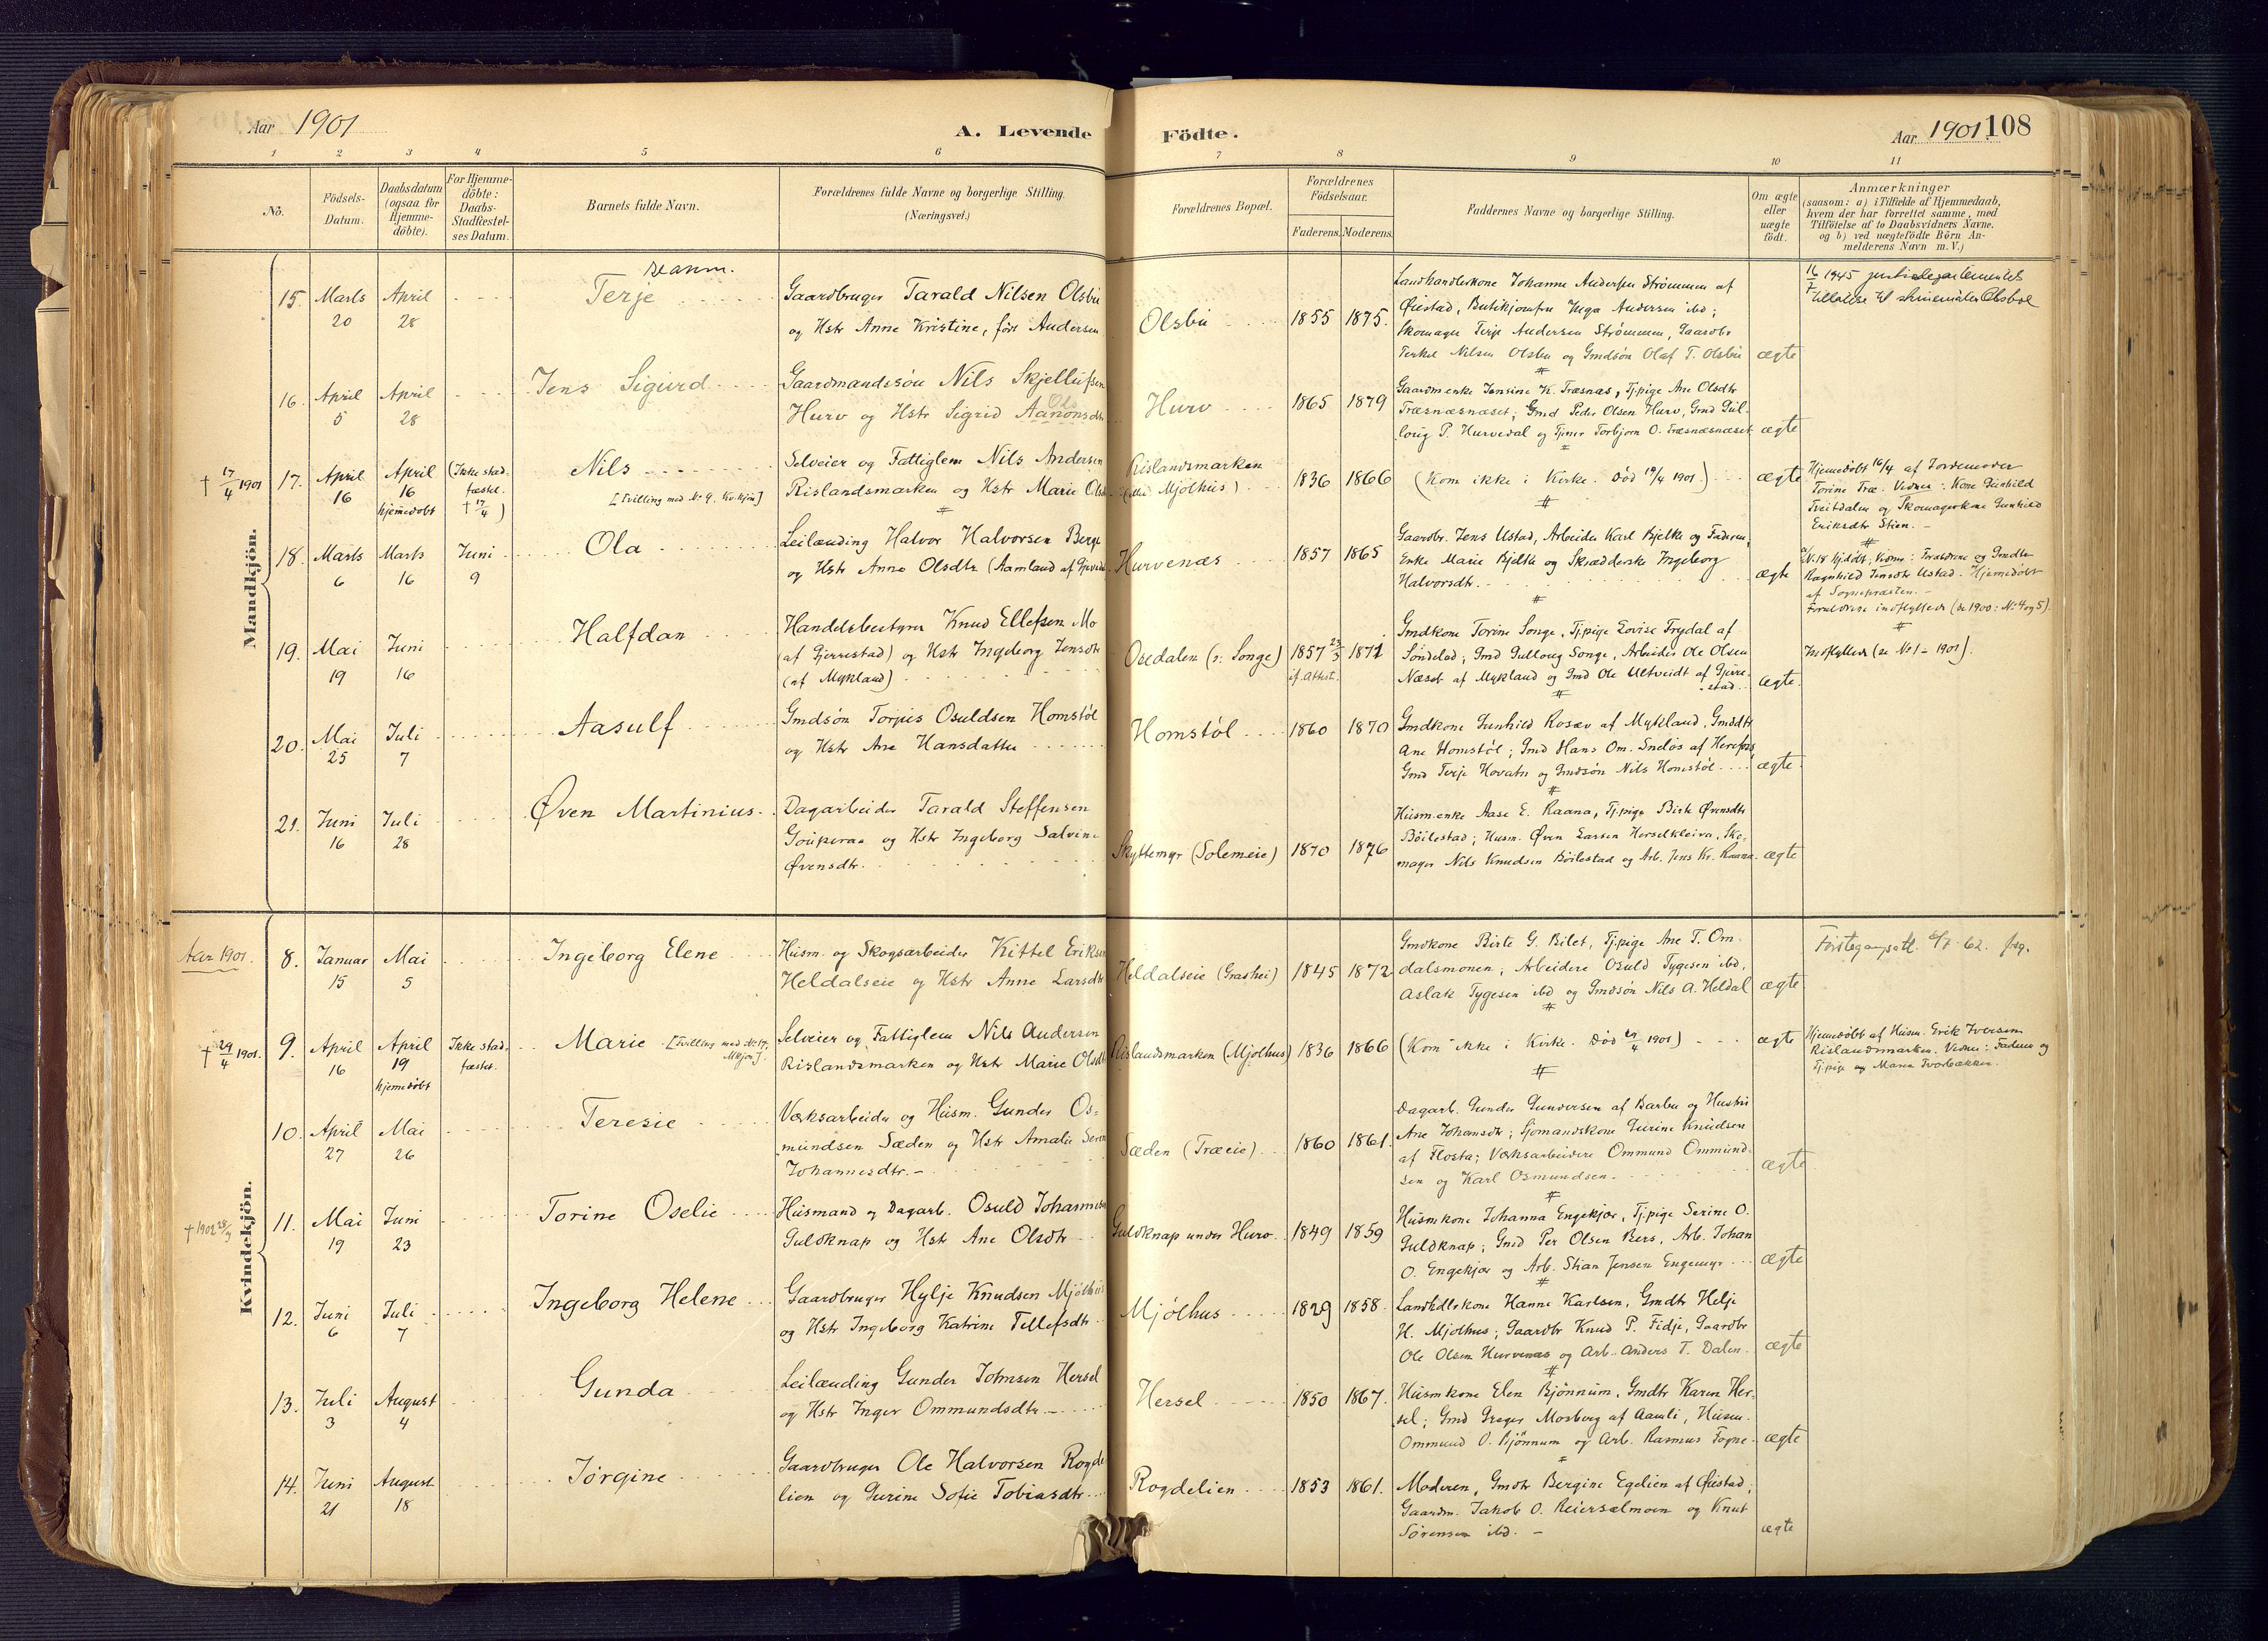 Aar 1901
A. Levende Födte.
Aar 1901 108
1 2 3 4 5 6 7 8 9 10 11
No.
Födsels-
Datum.
Daabsdatum
(ogsaa for
Hjemme-
döbte).
For Hjemme-
döbte:
Daabs-
Stadfæstel-
ses Datum.
Barnets fulde Navn.
Forældrenes fulde Navne og borgerlige Stilling.
(Næringsvei.)
Forældrenes Bopæl.
Forældrenes
Födselsaar.
Faderens. Moderens.
Faddernes Navne og borgerlige Stilling.
Om ægte
eller
uægte
födt.
Anmærkninger
(saasom: a) i Tilfælde af Hjemmedaab,
hvem der har forrettet samme, med
Tilföielse af to Daabsvidners Navne.
og b) ved uægtefödte Börn An-
melderens Navn m. V.)
Mandkjön.
15. Marts
20
April
28
Terje
Gaardbruger Tarald Nilsen Olsbu
og Hstr Anne Kristine, født Andersen
Olsbu
1855 1875.
Landhandlerkone Johanne Andersen Strømmen af
Øiestad, Butikjomfru Inga Andersen ibd;
Skomager Terje Andersen Strømmen, Gaardbr
Terkel Nilsen Olsbu og Gmdsøn Olaf T. Olsbu
ægte
16/7 1945 justisdepartementets
tillatelse til slektsnavnet Olsbu
16. April
5
April
28
Jens Sigurd
Gaardmandssøn Nils Skjellufsen
Hurv og Hstr Sigrid Aanonsdtr
Hurv
1865 1879
Gaardm.enke Jensine K. Træsnæs, Tj.pige Ane Olsdtr
Træsnæsnæset; Gmd Peder Olsen Hurv, Gmd Gul-
loug P. Hurvedal og Tjener Torbjørn O. Træsnæsnæset
ægte
† 17/4 1901
17. April
16
April
16
hjemedøbt
(Ikke stad-
fæstet.
† 17/4)
Nils
[Tvilling med No 9, Kv.kjøn]
Selveier og Fattiglem Nils Andersen
Rislandsmarken og Hstr Marie Olsdtr
Rislandsmarken
Mjølhus)
1836 1866
(Kom ikke i Kirke. Død 17/4 1901.)
ægte
Hjemedøbt 16/4 af Jordemoder
Torine Træ. Vidner: Kone Gunhild
Tveitdalen og Skomagerkone Gunhild
Eriksdtr Stien.
18. Marts
6
Marts
16
Juni
9
Ola
Leilænding Halvor Halvorsen Berge
og Hstr Anne Olsdtr (Aamland af
Hurvenæs
1857 1865
Gaardbr. Jens Ustad, Arbeider Karl Bjelke og Faderen;
Enke Marie Bjelke og Skrædderske Ingeborg
Halvorsdtr.
ægte
No 18 Hj.døbt; Vidner: Forældrene og Gmdtr
Ragnhild Jensdtr Ustad. Hjemedøbt
af Sognepræsten.
Forældrene indflyttede (se 1900: No 4 og 5).
19. Mai
19
Juni
16
Halfdan
Handelsbestyrer Knud Ellefsen Mo
(af Gjerrestad) og Hstr Ingeborg Jensdtr
(af Mykland)
Osedalen (v. Songe)
1857 23/3 1871
if. Attest.
Gmdkone Torine Songe, Tj.pige Lovise Frydal af
Søndeled; Gmd Gulloug Songe, Arbeider Ole Olsen
Næset af Mykland og Gmd Ole Ultveidt af Gjerre-
stad
ægte.
Indflyttede (se No 1 - 1901).
20. Mai
25
Juli
7
Aasulf
Gmdsøn Torjus Osuldsen Homstøl
og Hstr Ane Hansdatter
Homstøl
1860 1870
Gmdkone Gunhild Rosæv af Mykland, Gmdtr
Ane Homstøl; Gmd Hans Om. Sneløs af Herefos;
Gmd Terje Hovatn og Gmdsøn Nils Homstøl
ægte
21. Juni
16
Juli
28
Øven Martinius
Dagarbeider Tarald Steffensen
Gouperaa og Hstr Ingeborg Salvine
Øvensdtr.
Skyttemyr (Solemeie)
1870 1876
Husm.enke Aase E. Raana, Tj.pige Birte Øvensdtr
Bøilestad; Husm. Øven Larsen Herselkleiva, Sko-
mager Nils Knudsen Bøilestad og Arb. Jens Kr. Raana
ægte
Kvindekjön.
Aar 1901.
8. Januar
15
Mai
5
Ingeborg Elene
Husm. og Skogsarbeider Kittel Eriksen
Heldalseie og Hstr Anne Larsdtr
Heldalseie (Grashei)
1845 1872
Gmdkone Birte G. Bilet, Tj.pige Ane T. Om-
dalsmonen; Arbeidere Osuld Tygesen ibd,
Aslak Tygesen ibd og Gmdsøn Nils A. Heldal
ægte
Førstegangsatt. 6/7-62.
† 29/4 1901.
9. April
16
April
19
hjemedøbt
Ikke stad-
fæstet.
Marie [Tvilling med No 17,
M.kjøn].
Selveier og Fattiglem Nils Andersen
Rislandsmarken og Hstr Marie Olsdtr
Rislandsmarken (Mjølhus)
1836 1866
(Kom ikke i Kirke. Død 29/4 1901)
ægte
Hjemedøbt af Husm. Erik Iversen
Rislandsmarken. Vidner: Faderen og
Tj.pige Maren Tvorbækken.
10. April
27
Mai
26
Teresie
Værksarbeider og Husm. Gunder Os-
mundsen Sæden og Hstr Amalie Seren
Johannesdtr.
Sæden (Træeie)
1860 1861.
Dagarb. Gunder Gundersen af Barbu og Hustru
Ane Johansdtr; Sjømandskone Gurine Knudsen
af Flosta; Værksarbeidere Ommund Ommund-
sen og Karl Osmundsen.
ægte
† 1902 28/9
11. Mai
19
Juni
23
Torine Oselie
Husmand og Dagarb. Osuld Johannesen
Guldknap og Hstr Ane Olsdtr
Guldknap under Hurv.
1849 1859
Husmkone Johanna Engekjær, Tj.pige Serine O.
Guldknap; Gmd Per Olsen Bers, Arb. Johan
O. Engekjær og Arb. Stian Jensen Engemyr
ægte
12. Juni
6
Juli
7
Ingeborg Helene
Gaardbruger Hylje Knudsen Mjølhus
og Hstr Ingeborg Katrine Tellefsdtr
Mjølhus
1829 1858.
Landhdlrkone Hanne Karlsen, Gmdtr Helje
H. Mjølhus; Gaardbr Knud P. Fidje, Gaardbr
Ole Olsen Hurvenæs og Arb. Anders T. Dalen
ægte
13. Juli
3
August
4
Gunda
Leilænding Gunder Johnsen Hersel
og Hstr Inger Ommundsdtr
Hersel
1850 1867.
Husmkone Elen Bjønnum, Gmdtr Karen Her-
sel; Gmd Greger Mosberg af Aamli, Husm.
Ommund O. Bjønnum og Arb. Rasmus Fogne
ægte
14. Juni
21
August
18
Jørgine
Gaardbruger Ole Halvorsen Rogde-
lien og Gurine Sofie Tobiasdtr
Rogdelien
1853 1861.
Moderen, Gmdtr Bergine Egelien af Øiestad;
Gaardm. Jakob O. Reiersælmoen og Knut
Sørensen ibd.
ægte